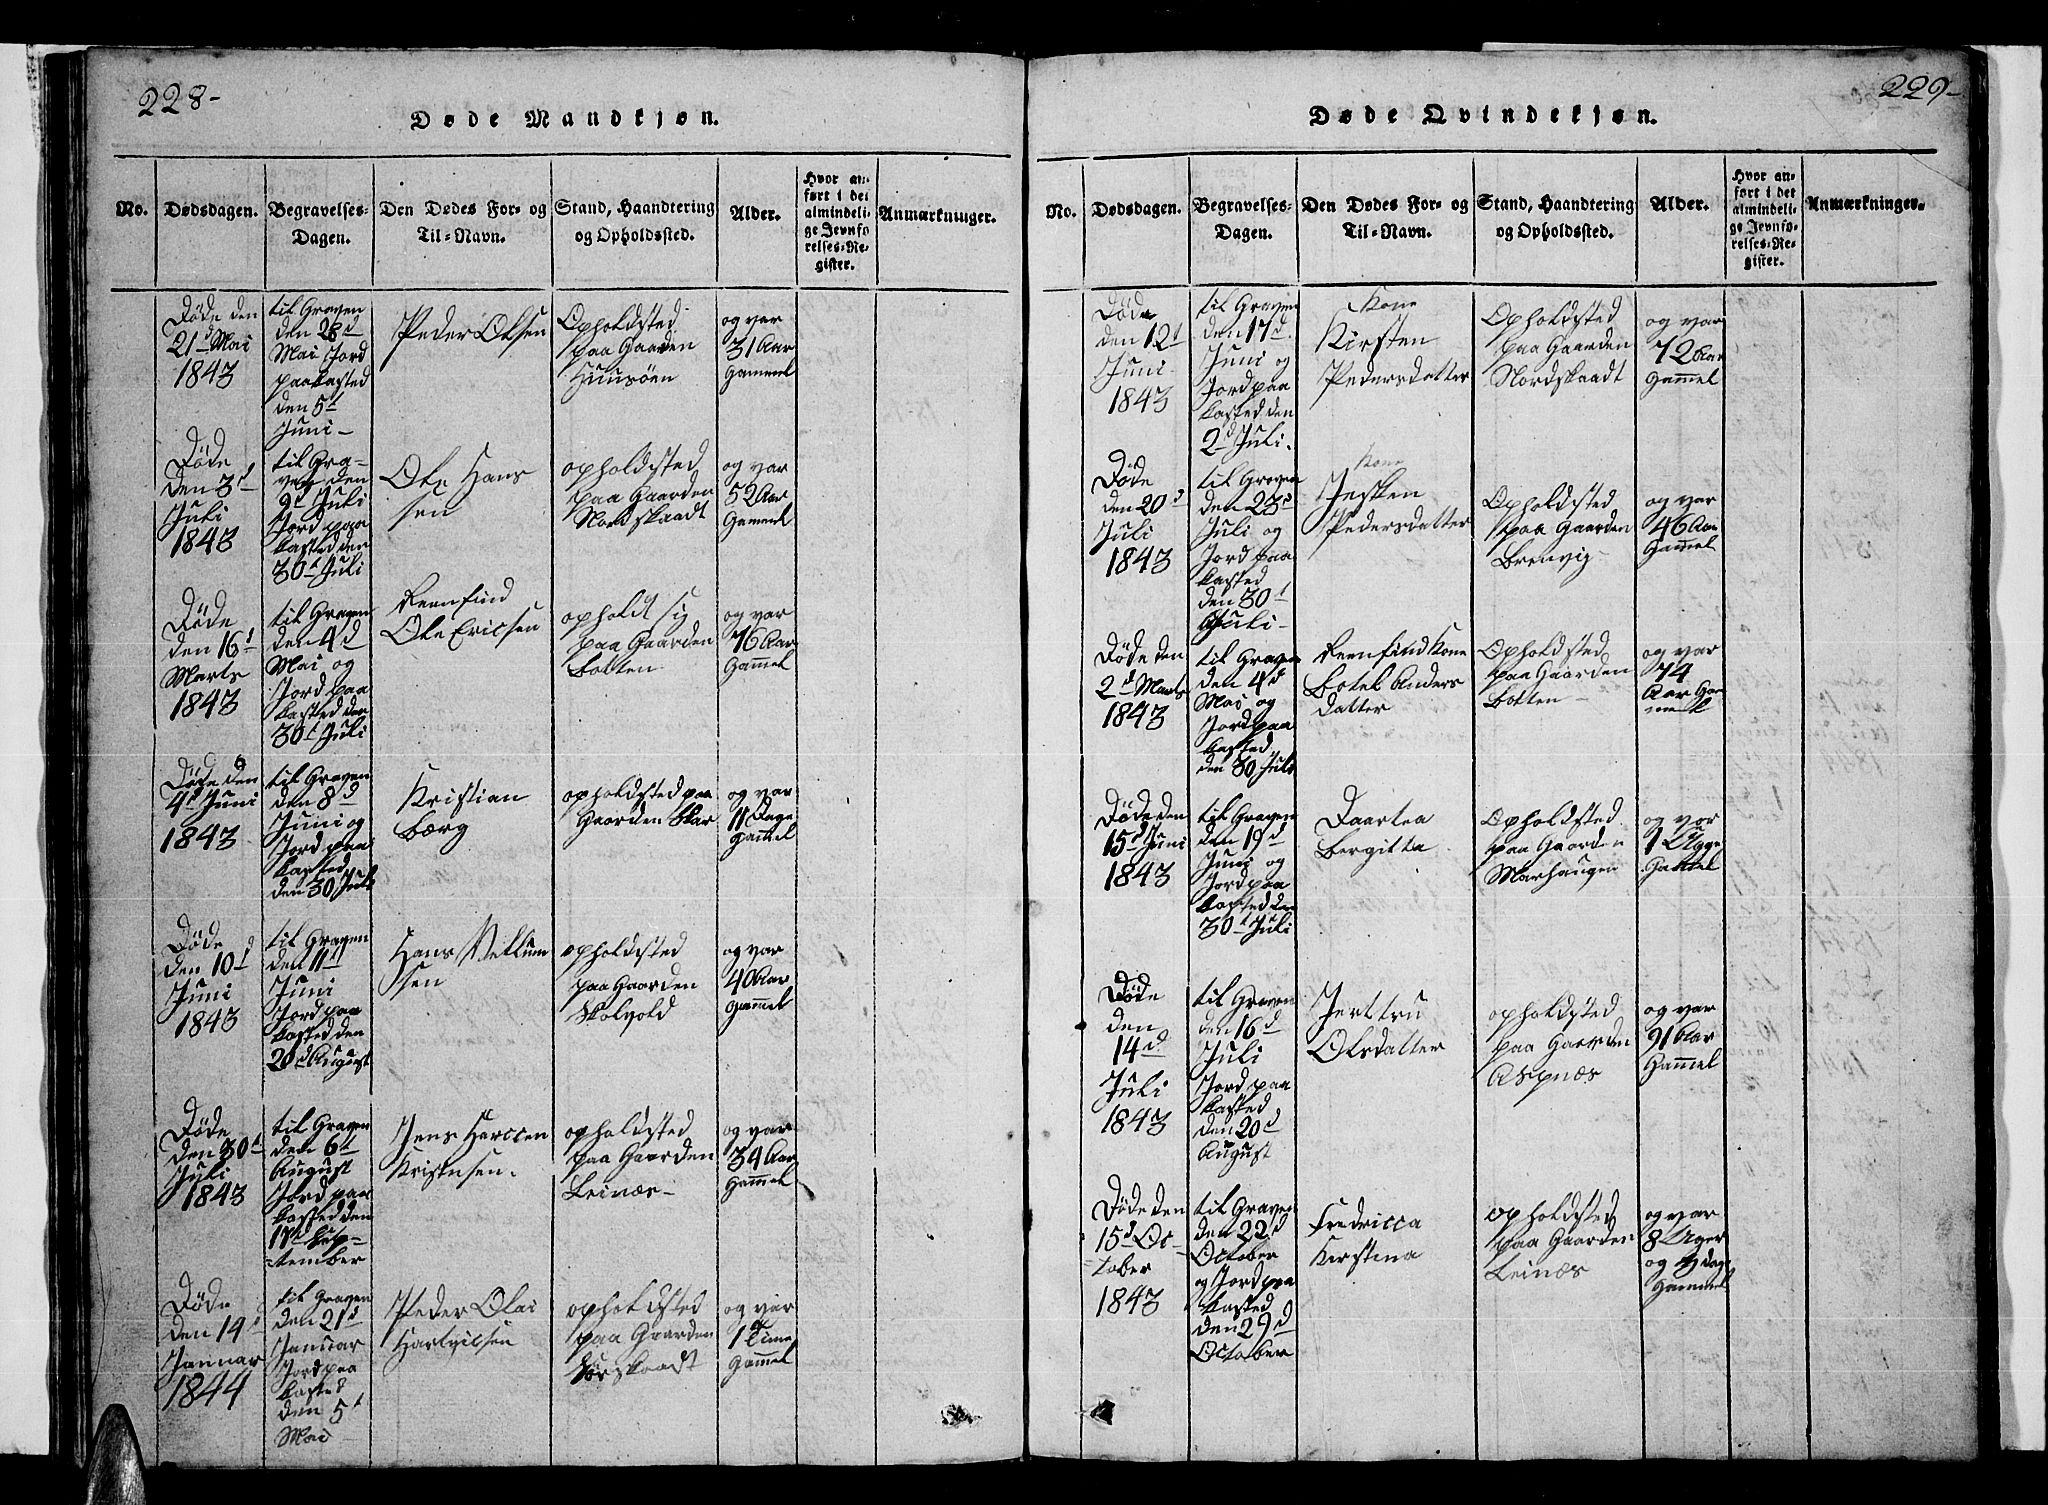 228-
Døde Mandkjøn.
No.
Dødsdagen.
Begravelses-
Dagen.
Den Dødes For- og
Til-Navn.
Stand, Haandtering
og Opholdssted.
Alder.
Hvor an-
ført i det
almindeli-
ge Jevnfø-
relses-Re-
gister.
Anmærkninger.
Døde den
21d Mai
1843
til Graven
den 28d
Mai Jord
paakasted
den 5t
Juni-
Peder Olsen
Opholdsted
paa Gaarden
og var
31 Aar
Gammel
Døde
den 3d
Juli
1843
til Gra-
ven den
9d Juli
Jord paa
kasted den
30t Juli
Ole Hans
sen
opholdsted
paa Gaarden
Nordskaadt
og var
52 Aar
Gammel
Døde
den 16d
Marts
1843
til Graven
den 4d
Mai og
Jord paa
kasted den
30t Juli
Reenfind
Ole Ericsen
opholdt sig
paa Gaarden
Botten
og var
76 Aar
Gammel
Døde den
4d Juni
1843
til Graven
den 8d
Juni og
Jord paa
kasted
den 30 Juli
Kristian
Bærg
opholdsted paa
Gaarden Skar
og var
11 Dage
Gammel
Døde
den 10d
Juni
1843
til Graven
den 11d
Juni
Jord paa
kasted den
20d August
Hans Vellum
sen
opholdsted
paa Gaarden
Skolvold
og var
40 Aar
Gammel
Døde
den 30t
Juli
1843
til Graven
den 6t
August
Jord paa
kasted den
17d Sep-
-tember
Jens
Kristensen.
opholdsted
paa Gaarden
Leinæs-
og var
34 Aar
Gammel
Døde
den 19d
Januar
1844
til Graven
den 21d
Januar
Jord paa
kasted
den 5t
Mai
Peder Olai
Hartvicsen
opholdsted
paa Gaarden
og var
1 Time
Gammel
229-
Døde Qvindekjøn.
No.
Dødsdagen.
Begravelses-
Dagen.
Den Dødes For- og
Til-Navn.
Stand, Haandtering
og Opholdssted.
Alder.
Hvor an-
ført i det
almindeli-
ge Jevnfø-
relses-Re-
gister.
Anmærkninger.
Døde
den 12t
Juni
1843
til Graven
den 17d
Juni og
Jord paa
kasted den
2d Juli.
Kone
Kirsten
Pedersdatter
Opholdsted
paa Gaarden
Nordskaadt
og var
72 Aar
Gammel
Døde
den 20d
Juli
1843
til Graven
den 23d
Juli og
Jord paa
kasted
den 30t
Juli-
Kone
Pedersdatter
Opholdsted
paa Gaarden
Brenvig-
og var
46 Aar
Gammel
Døde den
2d Marts
1843
til Graven
den 4d
Mai og
Jord paa
kasted
den 30 Juli
Reenfind Kone
Botel Anders
datter
Opholdsted
paa Gaarden
Botten -
og var
74
Aar Gam
mel
Døde den
15d Juni
1843
til Graven
den 19d
Juni og
Jord paa
kasted den
30t Juli
Daartea
Bergitta
Opholdsted
paa Gaarden
Marhaugen
og var
1 Uge
Gammel
Døde
den
14d
Juli
1843
til Graven
den 16d
Juli
Jord paa
kasted
den 20d
August
Jerttru
Olsdatter
opholdsted
paa Gaarden
Aspnæs
og var
91 Aar
Gammel
Døde den
15d Oc-
-tober
1843
til Graven
den 22d
October
og Jord paa
kasted
den 29d
October
Fredricca
Kerstina
opholdsted
paa Gaarden
Leinæs
og var
8 Uger
og 4 dage
Gammel